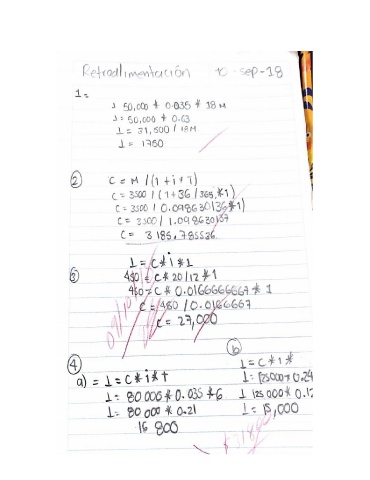 Retroalimentación 10-sep-18
1=
I 50,000 * 0.035 * 18 M
I = 50,000 * 0.63
I = 31,500 / 18M
I = 1750
② C = M / (1 + i * T)
C = 3500 / (1+36 / 365 *1)
C = 3500 / 0.098630136 *1)
C = 3500 / 1.098630137
C = 3 185.785536
③ I = C * i * 1
450 = C * 20/12 * 1
450 = C * 0.01666666667 * 1
C = 450 / 0.0166667
C = 27,000
④
a) = I = C * i * t
I = 80 000 * 0.035 * 6
I = 80 000 * 0.21
16 800
ⓑ
I = C * i *
I = 125000 * 0.24
I 125 000 * 0.12
I = 15,000